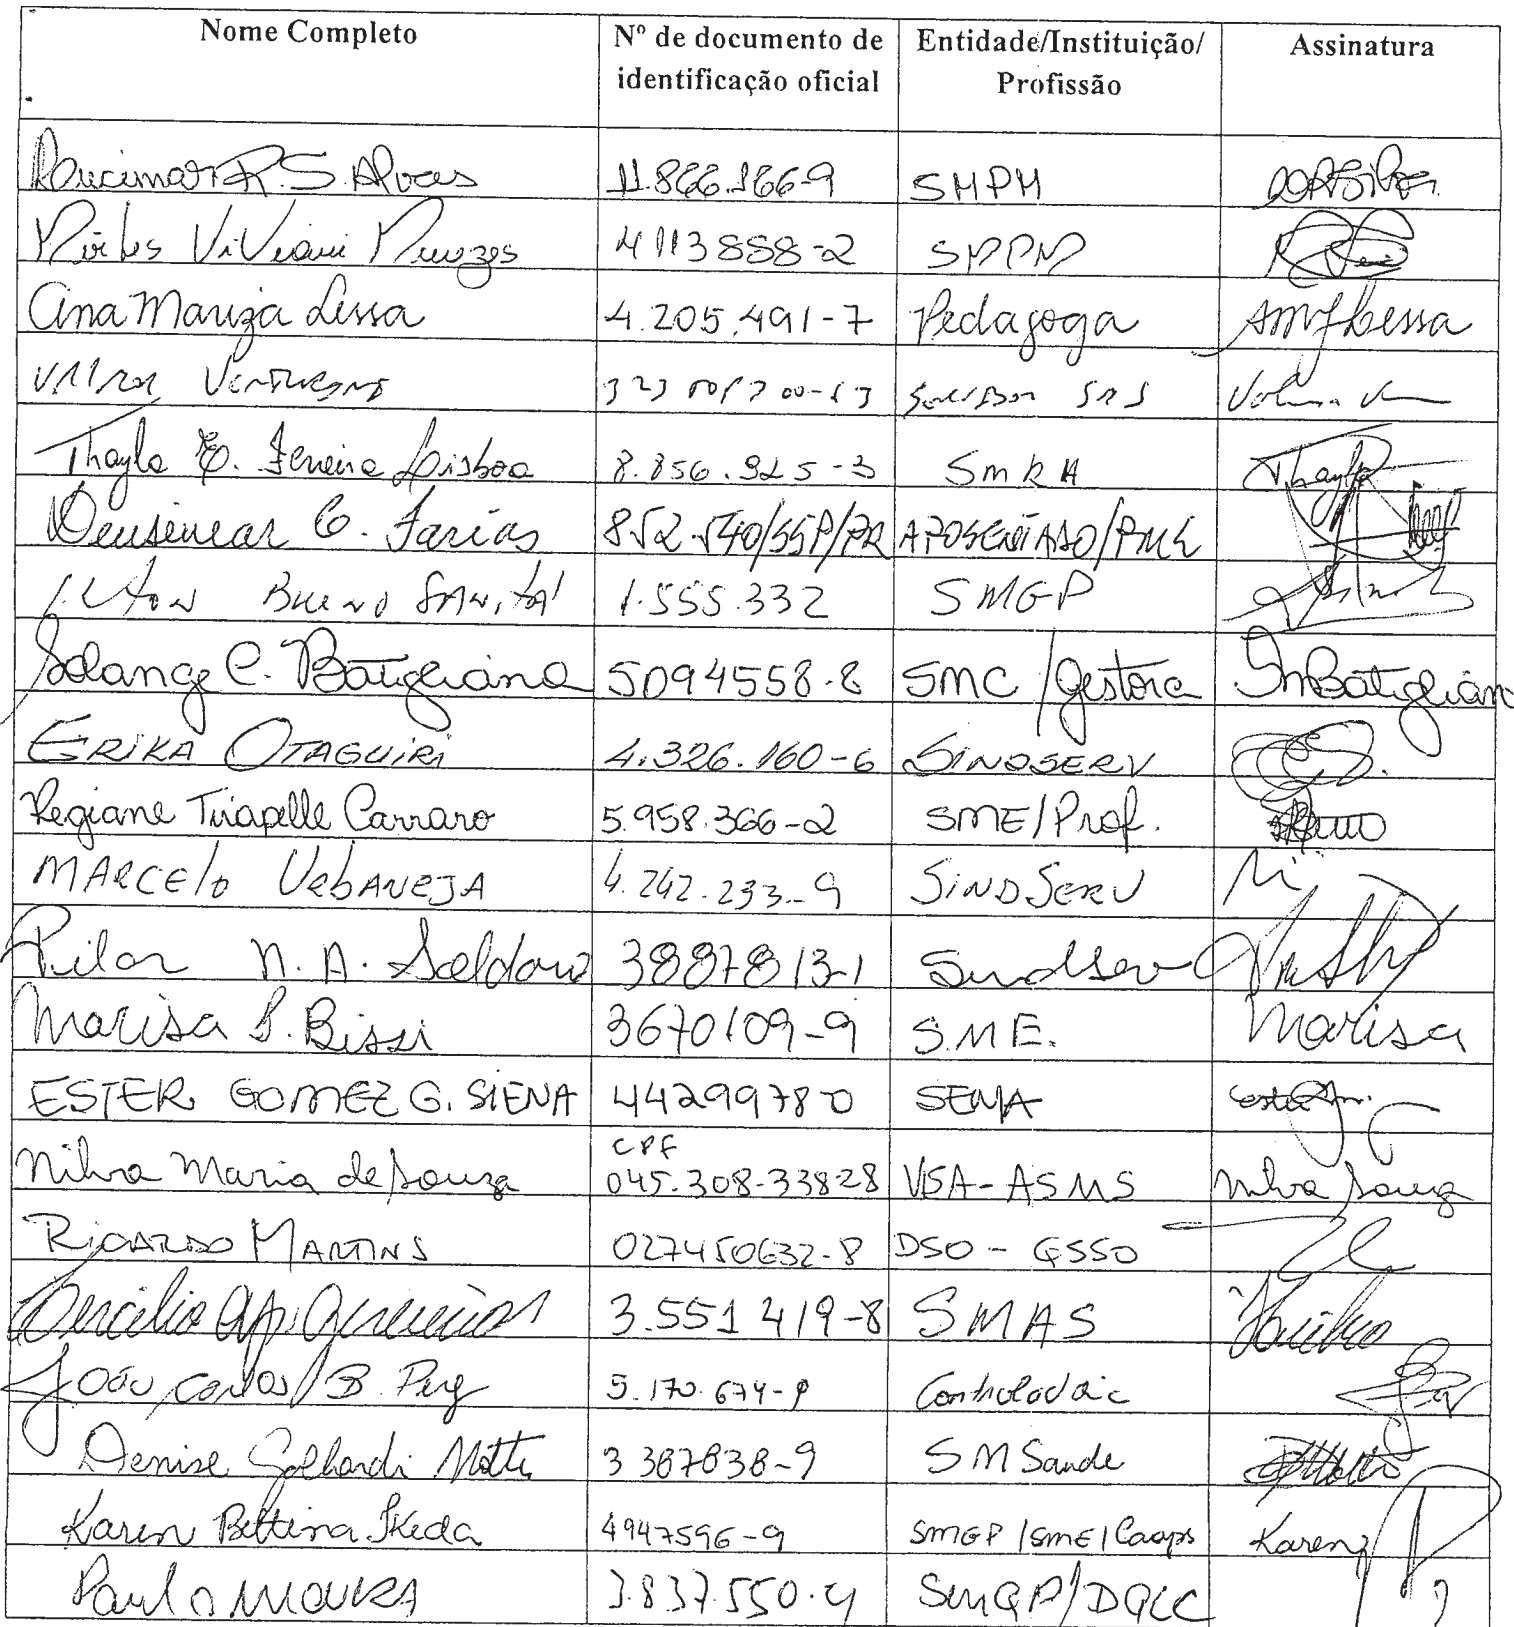 Nome Completo Nº de documento de identificação oficial Entidade/Instituição/ Profissão Assinatura
R. S. Alves 11.866.166-9 SMPM
4113858-2 SMPM
Ana Mariza Lessa 4.205.491-7 Pedagoga AMJLessa
Servidor
Thayla E. Ferreira Lisboa 8.856.925-3 Thayla
Deusimar C. Farias 852.540/SSP/PR APOSENTADO/PML
Bueno 1.555.332 SMGP
Solange C. Batigliana 5094558-8 SMC/gestora SMBatiglian
ERIKA OTAGUIRI 4.326.160-6 SINDSERV
Regiane Tirapelle Carraro 5.958.366-2 SME/Prof.
MARCElo UrbANEJA 4.242.233-9 SINDSERV
Pilar N. A. Soldorio 3887813-1 Sindserv
Marisa S. Bissi 3670109-9 S.M.E. Marisa
ESTER GOMEZ G. SIENA 44299780 SEMA
Nilva Maria de Souza CPF 045.308.338-28 VISA-ASMS Nilva Souza
RICARDO MARTINS 027450632-8 DSO - GSSO
3.551 419-8 SMAS
João Carlos B. 5.170.674- Controladoria
Denise 3 387838-9 SM Saude
Karen Bettina Ikeda 4947596-9 SMGP/SME/Caaps Karen
Paulo MOURA 3.837.550-4 SMGP/DGLC